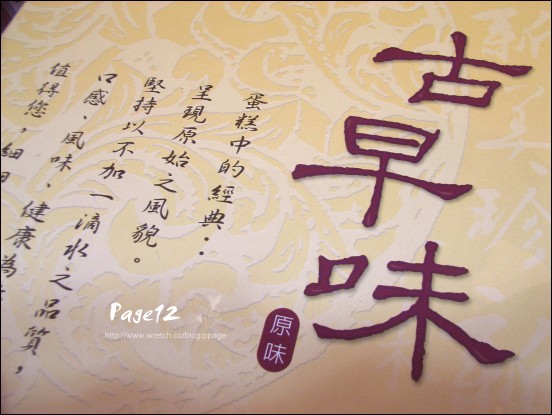 古早味
原味
蛋糕中的經典：
呈現原始之風貌。
堅持以不加一滴水之品質，
口感、風味、健康為
值得您，細
Page12
http://www.wretch.cc/blog/ppage